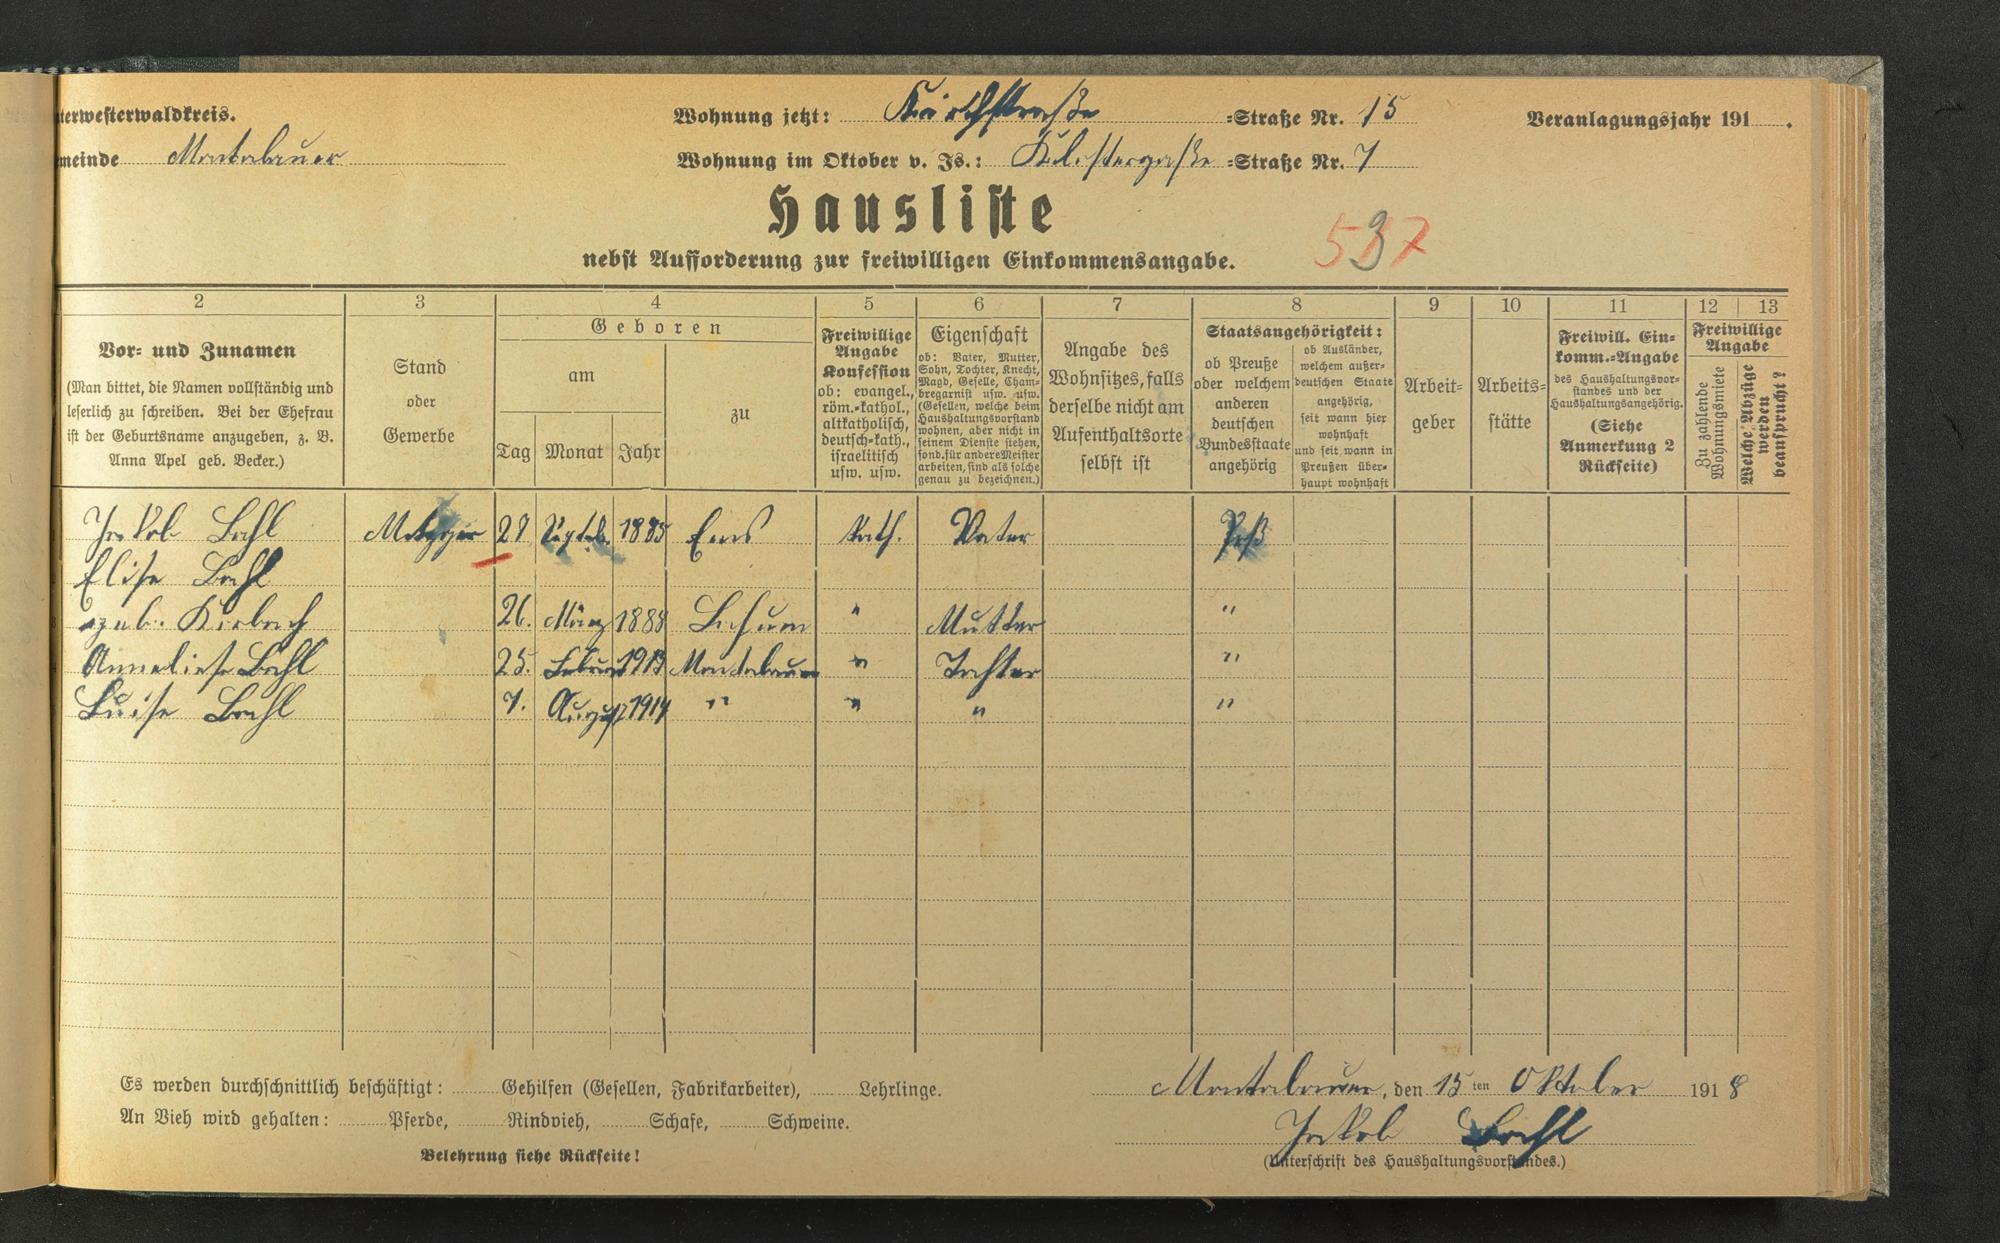 terwesterwaldkreis.
Wohnung jetzt: Kirchstraße =Straße Nr. 15
Veranlagungsjahr 191 .
meinde Montabaur
Wohnung im Oktober v. Js.: =Straße Nr. 7
Hausliste
nebst Aufforderung zur freiwilligen Einkommensangabe.
2 3 4 5 6 7 8 9 10 11 12 13
Vor= und Zunamen
(Man bittet, die Namen vollständig und
leserlich zu schreiben. Bei der Ehefrau
ist der Geburtsname anzugeben, z. B.
Anna Apel geb. Becker.)
Stand
oder
Gewerbe
Geboren
am
Tag Monat Jahr
zu
Freiwillige
Angabe
Konfession
ob: evangel.,
röm.=kathol.,
altkatholisch,
deutsch=kath.,
israelitisch
usw. usw.
Eigenschaft
ob: Vater, Mutter,
Sohn, Tochter, Knecht,
Magd, Geselle, Cham=
bregarnist usw. usw.
(Gesellen, welche beim
Haushaltungsvorstand
wohnen, aber nicht in
seinem Dienste stehen,
sond. für andere Meister
arbeiten, sind als solche
genau zu bezeichnen.)
Angabe des
Wohnsitzes, falls
derselbe nicht am
Aufenthaltsorte
selbst ist
Staatsangehörigkeit:
ob Preuße
oder welchem
anderen
deutschen
Bundesstaate
angehörig
ob Ausländer,
welchem außer=
deutschen Staate
angehörig,
seit wann hier
wohnhaft
und seit wann in
Preußen über=
haupt wohnhaft
Arbeit=
geber
Arbeits=
stätte
Freiwill. Ein=
komm.=Angabe
des Haushaltungsvor=
standes und der
Haushaltungsangehörig.
(Siehe
Anmerkung 2
Rückseite)
Freiwillige
Angabe
Zu zahlende
Wohnungsmiete
Welche Abzüge
werden
beansprucht?
Jakob Bachl Metzger Septeb. 1885 Ems kath. Vater
Elise Bachl
geb. 26. März 1888 " Mutter "
Anneliese Bachl 25. Februar 1913 Montabaur " Tochter "
Luise Bachl 7. August 1914 " " " "
Es werden durchschnittlich beschäftigt: Gehilfen (Gesellen, Fabrikarbeiter), Lehrlinge.
An Vieh wird gehalten: Pferde, Rindvieh, Schafe, Schweine.
Belehrung siehe Rückseite!
Montabaur, den 15 ten Oktober 1918
Jakob Bachl
(Unterschrift des Haushaltungsvorstandes.)